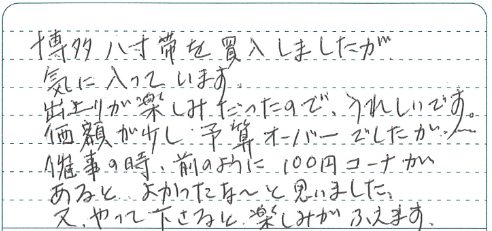 博多八寸帯を買入しましたが
気に入っています。
出来上りが楽しみだったので、うれしいです。
価額が少し予算オーバーでしたが〜
催事の時、前のように100円コーナが
あると よかったな〜と思いました、
又、やって下さると楽しみがふえます.